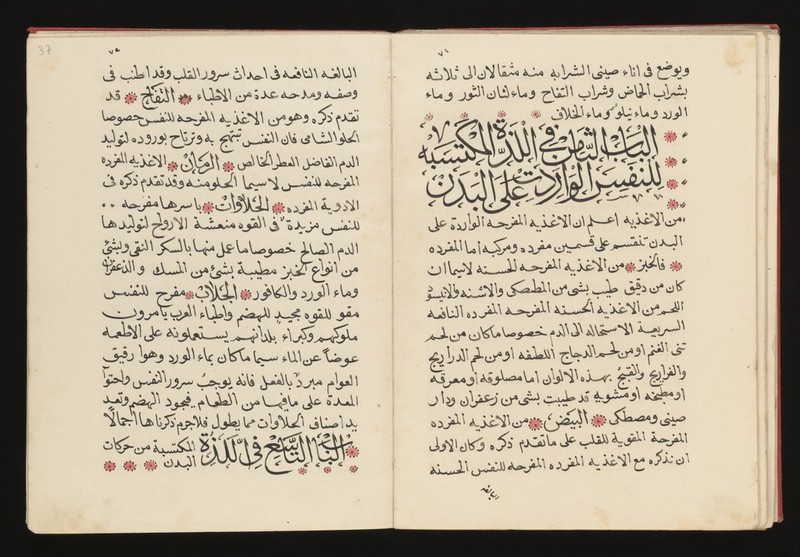 ٧١
ويوضع فى اناء صينى الشرابه منه مثقالان الى ثلاثه
بشراب الحماض وشراب التفاح وماء لسان الثور وماء
الورد وماء نيلوفر وماء الخلاف
الباب الثامن فى اللذة المكتسبه
للنفس الواردة على البدن
من الاغذيه اعلم ان الاغذيه المفرحه الواردة على
البدن تنقسم على قسمين مفرده ومركبه اما المفرده
فالخبز من الاغذيه المفرحه الحسنه لاسيما ان
كان من دقيق طيب بشى من المصطكى والاشنه
اللحم من الاغذيه الحسنه المفرحه المفرده النافعه
السريعة الاستحاله الى الدم خصوصا ماكان من لحم
ثنى الغنم او من لحم الدجاج اللطفه او من لحم الدراريج
والفراريج والقبج بهذه الالوان اما مصلوقه او معرقه
او مطبخه او مشويه قد طيبت بشى من زعفران ودار
صينى ومصطكى البيض من الاغذيه المفرده
المفرحة المقوية للقلب على ماتقدم ذكره وكان الاولى
ان نذكره مع الاغذيه المفرده المفرحه للنفس الحسنه
البالغه
٧٢
37
البالغه النافعه فى احداث سرور القلب وقد اطنب فى
وصفه ومدحه عدة من الاطباء التفاح قد
تقدم ذكره وهو من الاغذيه المفرده للنفس خصوصا
الحلو الشامى فان النفس تبتهج به وترتاح بوروده لتوليد
الدم الفاضل العطر الخالص الرمان الاغذيه المفرده
المفرحه للنفس لاسيما الحلو منه وقد تقدم ذكره فى
الادوية المفرده الحلاوات باسرها مفرحه
للنفس مزيدة فى القوه منعشة الارواح لتوليدها
الدم الصالح خصوصا ما عمل منها بالسكر النقى وبشئ
من انواع الخبز مطيبة بشئ من المسك والزعفران
وماء الورد والكافور الجلاب مفرح للنفس
مقو للقوه مجيد للهضم واطباء العرب يأمرون
ملوكهم وكبراء بلدانهم يستعملونه على الاطعمه
عوضا عن الماء سيما ماكان بماء الورد وهوا رقيق
العوام مبرد بالفعل فانه يوجب سرور النفس واحتوآ
المعدة على مافيها من الطعام فيجود الهضم وتعد
يد اصناف الحلاوات مما يطول فلاجرم ذكرناها اجمالا
الباب التاسع فى اللذة المكتسبة من حركات
البدن